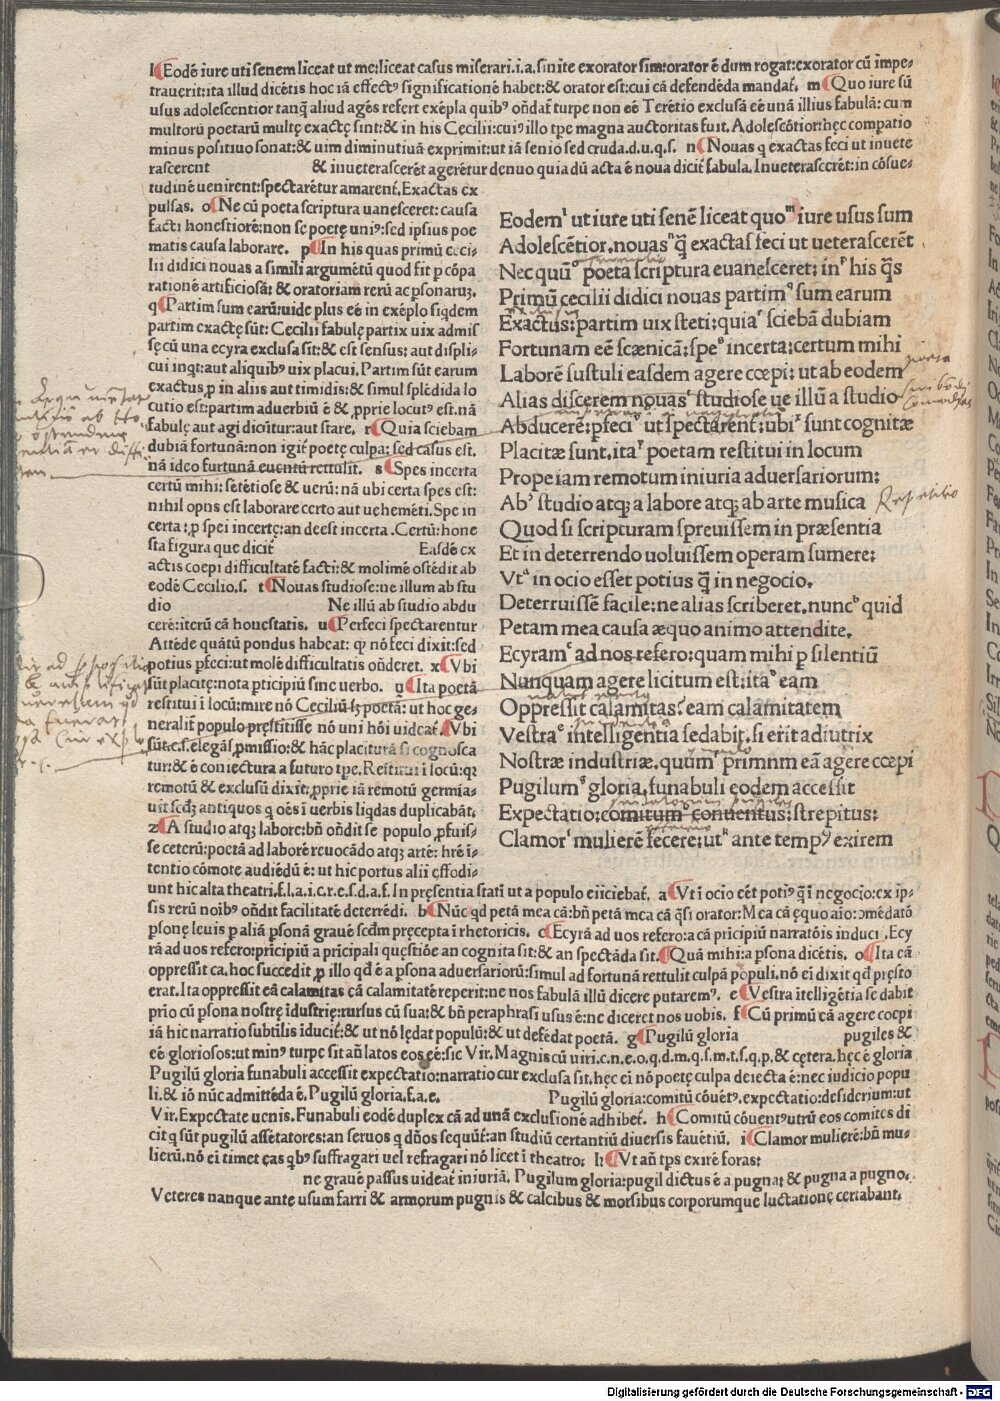 l Eodē iure uti senem liceat ut me: liceat casus miserari. i. a. sinite exorator sim: orator ē dum rogat: exorator cū īmpe-
trauerit: ita illud dicētis hoc iā effectꝰ significationē habet: & orator est: cui cā defendēda mandat̄. m Quo iure sū
usus adolescentior tanq̄ aliud agēs refert exēpla quibꝰ oñdat̄ turpe non eē Terētio exclusā eē unā illius fabulā: cum
multorū poetarū multę exactę sint: & in his Cecilii: cuiꝰ illo tp̄e magna auctoritas fuit. Adolescētior: hęc compatio
minus positiuo sonat: & uim diminutiuā exprimit: ut iā senio sed cruda. d. u. q. s. n Nouas q exactas feci ut inuete
rascerent & inueterascerēt agerētur denuo quia dū acta ē noua dicit̄ fabula. Inueterascerēt: in cōsue-
tudinē uenirent: spectarētur amarent̄. Exactas ex
pulsas. o Ne cū poeta scriptura uanesceret: causa
facti honestiore: non se poetę uniꝰ: sed ipsius poe
matis causa laborare. p In his quas primū ceci-
lii didici nouas a simili argumētū quod fit p cōpa
rationē artificiosā: & oratoriam rerū ac p̱sonaruꝫ.
q Partim sum earū: uide plus eē in exēplo siqdem
partim exactę sūt: Cecilii fabulę partix uix admis
sę cū una ecyra exclusa sit: & est sensus: aut displi-
cui inqt: aut aliquibꝰ uix placui. Partim sūt earum
exactus p in aliis aut timidis: & simul splēdida lo
cutio est: partim aduerbiū ē & p̱prie locutꝰ est. nā
fabulę aut agi dicūtur: aut stare. r Quia sciebam
dubiā fortunā: non igit̄ poetę culpa: sed casus est.
nā ideo furtunā euentū rettulit. s Spes incerta
certū mihi: setētiose & uerū: nā ubi certa spes est:
nihil opus est laborare certo aut uehemēti. Spe in
certa: p spei incertę: an deest incerta. Certū: hone
sta figura que dicit̄ Easdē ex
actis coepi difficultatē facti: & molimē ostēdit ab
eodē Cecilio. s. t Nouas studiose: ne illum ab stu
dio Ne illū ab studio abdu
cerē: iterū cā honestatis. u Perfeci spectarentur
Attēde quātū pondus habeat: qp nō feci dixit: sed
potius p̱feci: ut molē difficultatis oñderet. x Vbi
sūt placitę: nota pticipiū sine uerbo. y Ita poetā
restitui ī locū: mire nō Ceciliū: sꝫ poetā: ut hoc ge-
neralit̄ populo pręstitisse nō uni hōi uideat̄. Vbi
sūt. c. s. elegās p̱missio: & hāc placiturā si cognosca
tur: & ē coniectura a futuro tp̄e. Restitui ī locū: qꝛ
remotū & exclusū dixit: p̱prie iā remotū germia-
uit scdꝫ antiquos q oēs ī uerbis liqdas duplicabāt.
z A studio atqꝫ labore: bñ oñdit se populo p̱fuis-
se ceterū: poetā ad laborē reuocādo atqꝫ artē: hre ī-
tentio cōmote audiēdū ē: ut hic portus alii effodi-
unt hic alta theatri. f. l. a. i. c. r. e. s. d. a. f. In pręsentia statī ut a populo eiiciebat̄. a Vt ī ocio cēt potiꝰ q̄ ī negocio: ex ip-
sis rerū noibꝰ oñdit facilitatē deterrēdi. b Nūc qd petā mea cā: bñ petā mea cā q̄si orator: Mea cā ęquo aio: ɔmēdatō
p̱sonę leuis p aliā p̱sonā grauē scdm pręcepta ī rhetoricis. c Ecyrā ad uos refero: a cā prīcipiū narratōis induci. Ecy
rā ad uos refero: prīcipiū a prīcipali questiōe an cognita sit: & an spectāda sit. Quā mihi: a p̱sona dicētis. o Ita cā
oppressit ca. hoc succedit p illo qd ē a p̱sona aduersariorū: simul ad fortunā rettulit culpā populi. nō ei dixit qd pręsto
erat. Ita oppressit eā calamitas eā calamitatē reperit: ne nos fabulā illū dicere putaremꝰ. e Vestra ītelligētia sedabit
prio cū p̱sona nostrę īdustrię: rursus cū sua: & bñ peraphrasi usus ē: ne diceret nos uobis. f Cū primū eā agere coepi
iā hic narratio subtilis īducit̄: & ut nō lędat populū: & ut defēdat poetā. g Pugilū gloria pugiles &
eē gloriosos: ut minꝰ turpe sit añ latos eos eē: sic Vir. Magnis cū uiri. c. n. e. o. q. d. m. q. s. m. t. s. q. p. & cętera. hęc ē gloria
Pugilū gloria funabuli accessit expectatio: narratio cur exclusa sit. hęc ei nō poetę culpa deiecta ē: nec iudicio popu
li. & iō nūc admittēda ē. Pugilū gloria. f. a. e. Pugilū gloria: comitū cōuētꝰ. expectatio: desiderium: ut
Vir. Expectate uenis. Funabuli eodē duplex cā ad unā exclusionē adhibet̄. h Comitū cōuentꝰ utrū eos comites di
cit q sūt pugilū assetatores: an seruos q dños sequūt̄: an studiū certantiū diuersis fauētiū. i Clamor mulierē: bñ mu-
lierū. nō ei timet eas qbꝰ suffragari uel refragari nō licet ī theatro: k Vt añ tp̄s exirē foras:
ne graue passus uideat̄ iniuriā. Pugilum gloria: pugil dictus ē a pugna: & pugna a pugno.
Veteres nanque ante usum farri & armorum pugnis & calcibus & morsibus corporumque luctatione certabant.
Eodem ut iure uti senē liceat quo iure usus sum
Adolescētior. nouas q̄ exactas feci ut ueterascerēt
Nec quū poeta scriptura euanesceret: in his q̄s
Primū cecilii didici nouas partim sum earum
Exactus: partim uix steti: quia sciebā dubiam
Fortunam eē scænicā: spe incerta: certum mihi
Laborē sustuli easdem agere cœpi: ut ab eodem
Alias discerem nouas studiose ue illū a studio
Abducerē: pfeci ut spectarent̄: ubi sunt cognitæ
Placitæ sunt. ita poetam restitui in locum
Prope iam remotum iniuria aduersariorum:
Ab studio atqꝫ a labore atqꝫ ab arte musica
Repetitio
Quod si scripturam spreuissem in præsentia
Et in deterrendo uoluissem operam sumere:
Vt in ocio esset potius q̄ in negocio.
Deterruissē facile: ne alias scriberet. nunc quid
Petam mea causa æquo animo attendite.
Ecyram ad nos refero: quam mihi p silentiū
Nunquam agere licitum est: ita eam
Oppressit calamitas? eam calamitatem
Vestra intelligentia sedabit. si erit adiutrix
Nostræ industriæ. quum primnm eā agere cœpi
Pugilum gloria. funabuli eodem accessit
Expectatio: comitum conuentus: strepitus:
Clamor mulierē fecere: ut ante tempꝰ exirem
Digitalisierung gefördert durch die Deutsche Forschungsgemeinschaft - DFG